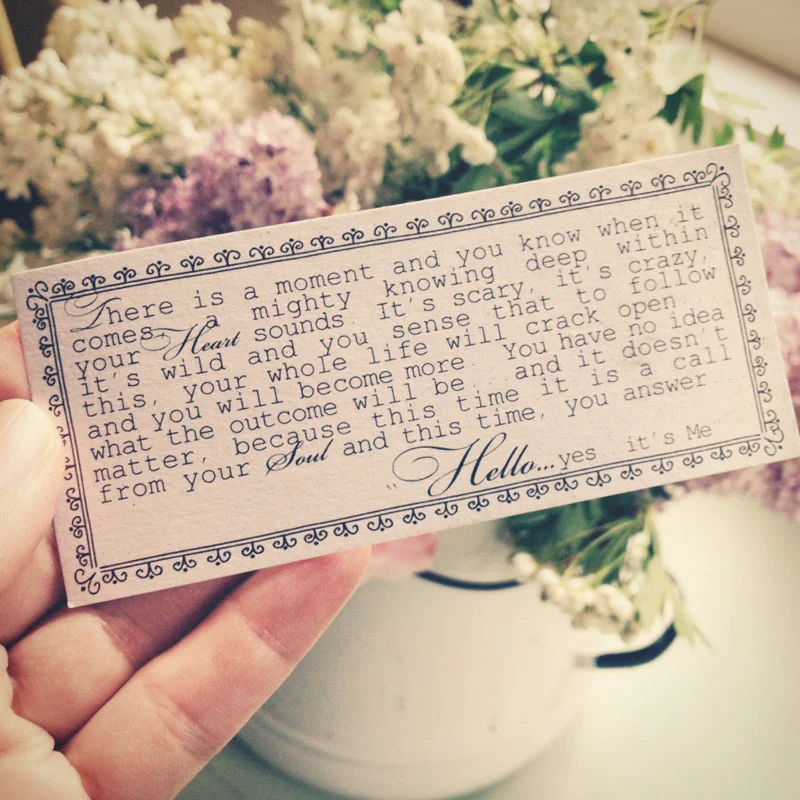 There is a moment and you know when it
comes, a mighty knowing deep within
your Heart sounds. It's scary, it's crazy,
it's wild and you sense that to follow
this, your whole life will crack open...
and you will become more. You have no idea
what the outcome will be... and it doesn't
matter, because this time it is a call
from your Soul and this time, you answer...
"Hello...yes...it's Me"